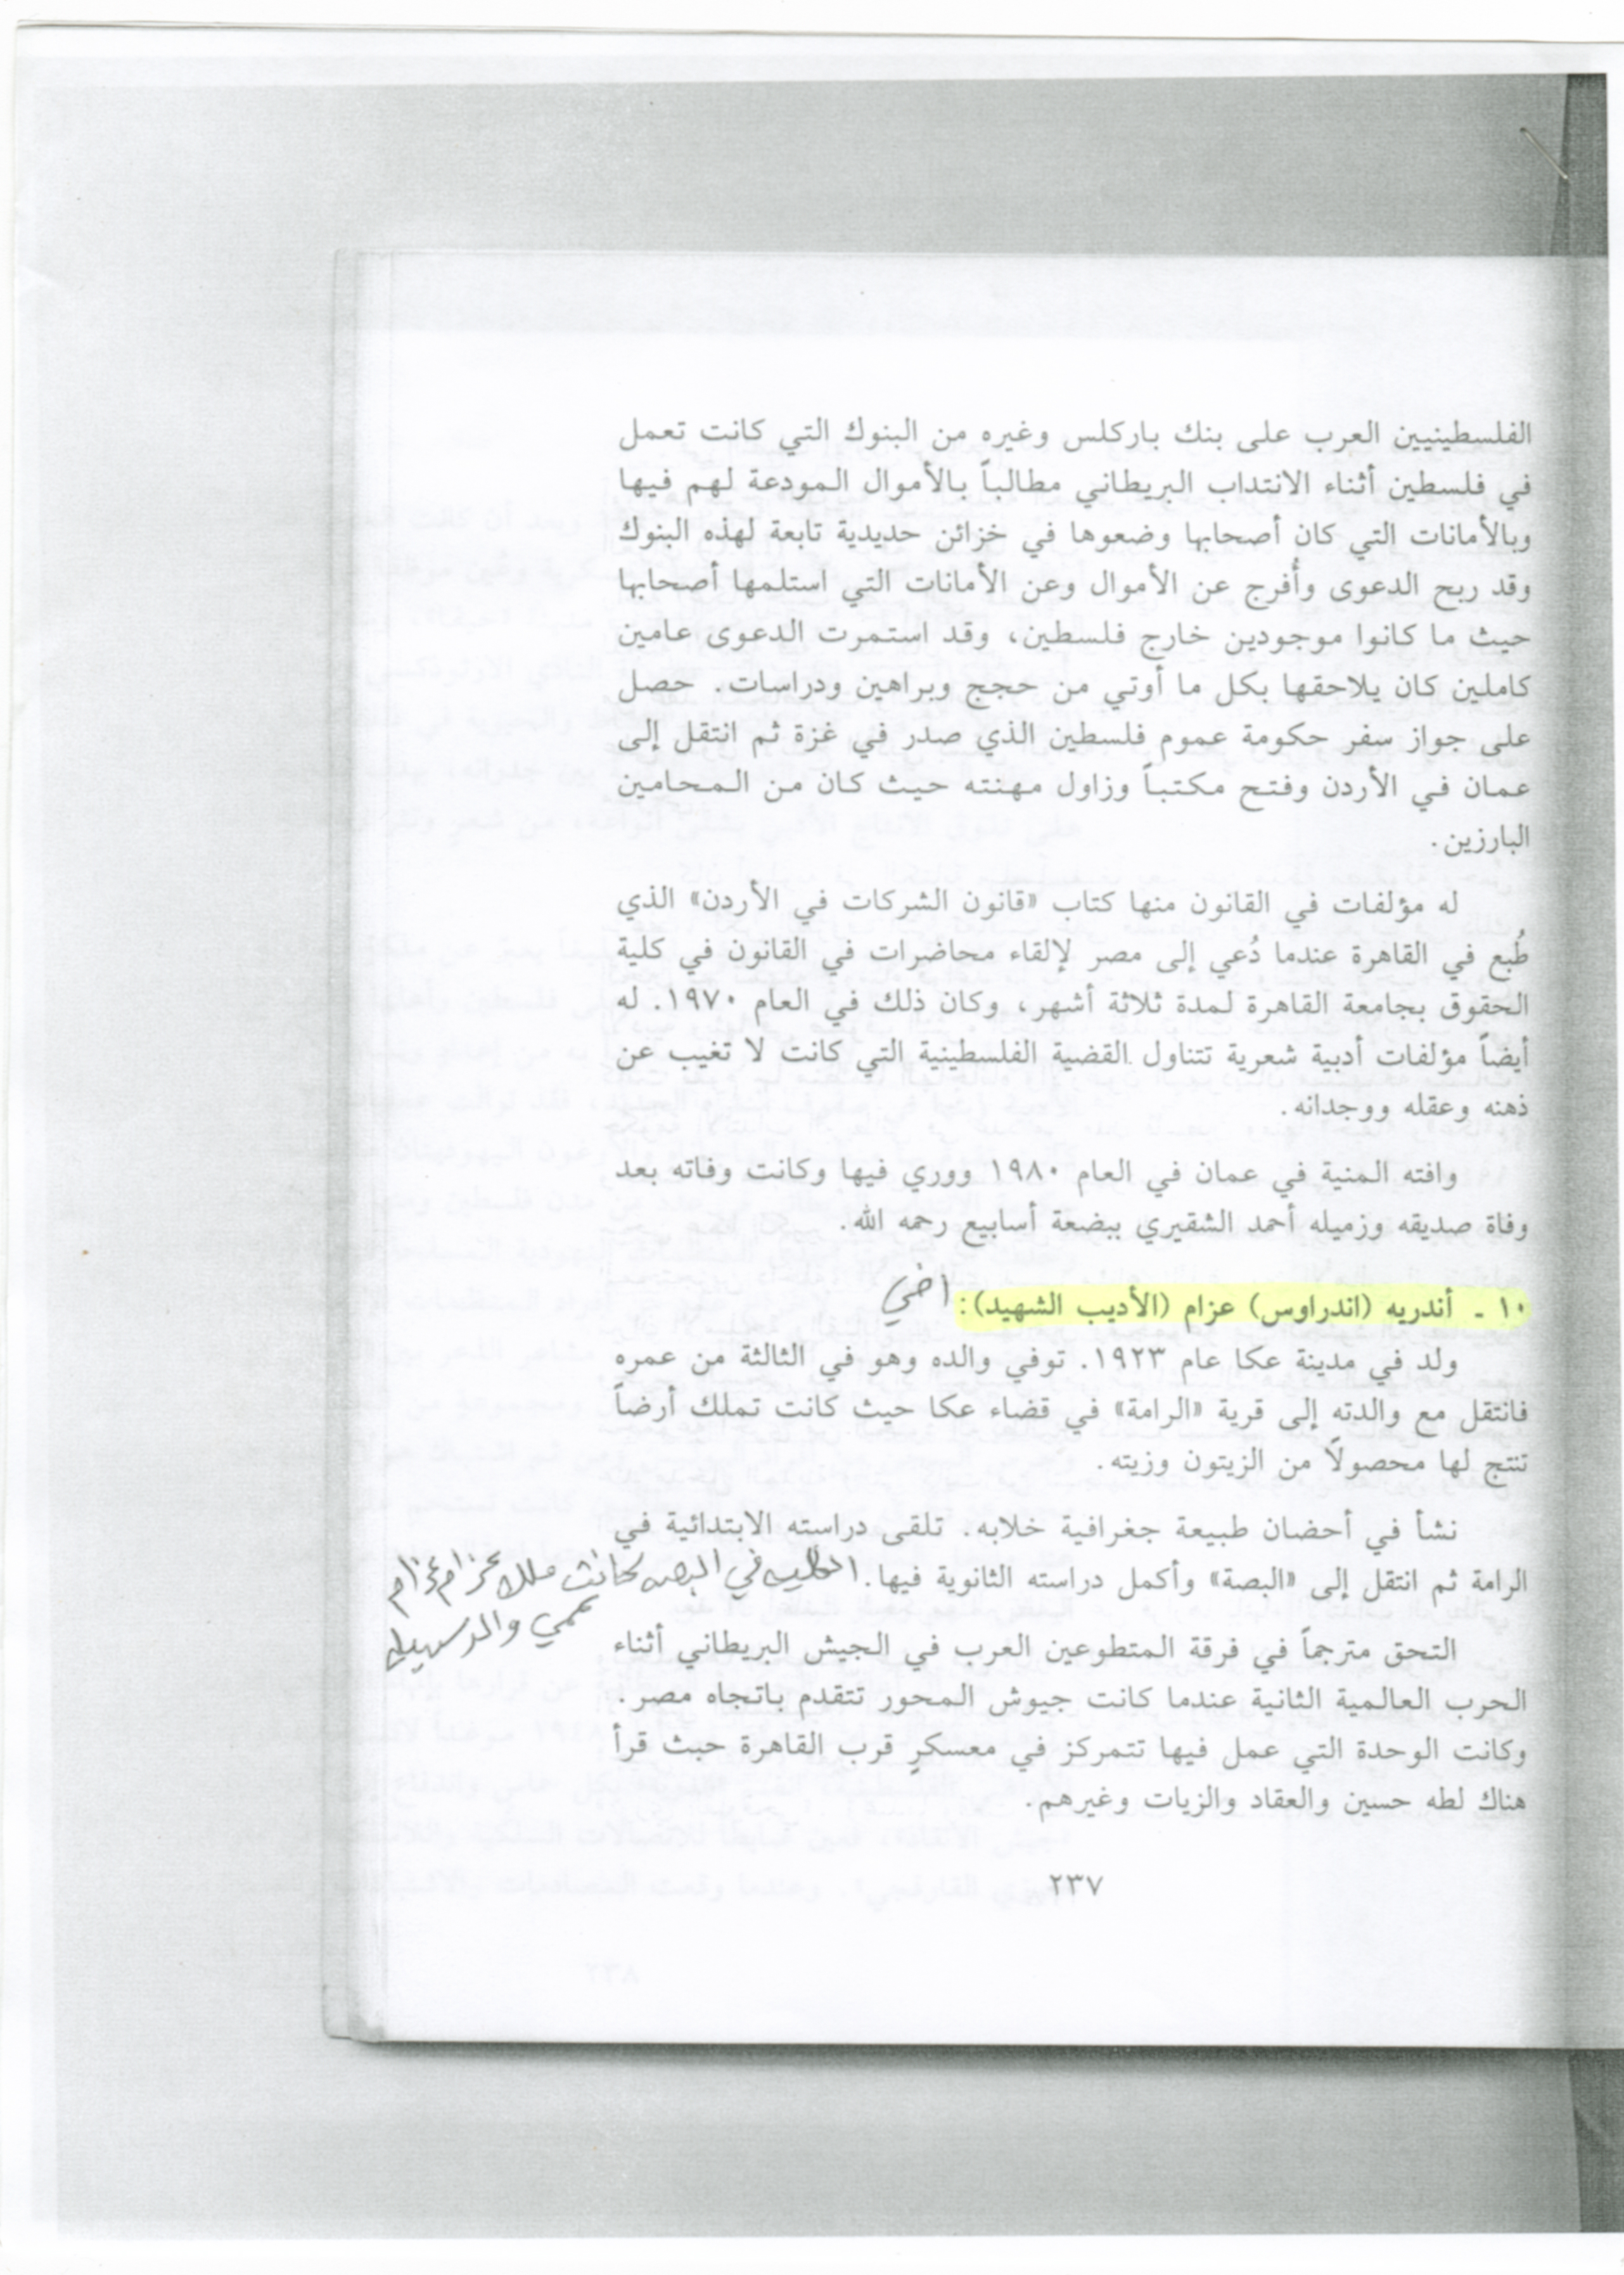 الفلسطينيين العرب على بنك باركلس وغيره من البنوك التي كانت تعمل
في فلسطين أثناء الانتداب البريطاني مطالباً بالأموال المودعة لهم فيها
وبالأمانات التي كان أصحابها وضعوها في خزائن حديدية تابعة لهذه البنوك
وقد ربح الدعوى وأُفرج عن الأموال وعن الأمانات التي استلمها أصحابها
حيث ما كانوا موجودين خارج فلسطين، وقد استمرت الدعوى عامين
كاملين كان يلاحقها بكل ما أوتي من حجج وبراهين ودراسات. حصل
على جواز سفر حكومة عموم فلسطين الذي صدر في غزة ثم انتقل إلى
عمان في الأردن وفتح مكتباً وزاول مهنته حيث كان من المحامين
البارزين.
له مؤلفات في القانون منها كتاب «قانون الشركات في الأردن» الذي
طُبع في القاهرة عندما دُعي إلى مصر لإلقاء محاضرات في القانون في كلية
الحقوق بجامعة القاهرة لمدة ثلاثة أشهر، وكان ذلك في العام ١٩٧٠. له
أيضاً مؤلفات أدبية شعرية تتناول القضية الفلسطينية التي كانت لا تغيب عن
ذهنه وعقله ووجدانه.
وافته المنية في عمان في العام ١٩٨٠ ووري فيها وكانت وفاته بعد
وفاة صديقه وزميله أحمد الشقيري ببضعة أسابيع رحمه الله.
١٠ ـ أندريه (اندراوس) عزام (الأديب الشهيد): اخي
ولد في مدينة عكا عام ١٩٢٣. توفي والده وهو في الثالثة من عمره
فانتقل مع والدته إلى قرية «الرامة» في قضاء عكا حيث كانت تملك أرضاً
تنتج لها محصولاً من الزيتون وزيته.
نشأ في أحضان طبيعة جغرافية خلابه. تلقى دراسته الابتدائية في
الرامة ثم انتقل إلى «البصة» وأكمل دراسته الثانوية فيها. في البصه كانت ملك عزام عزام
عمي والد سهيل
التحق مترجماً في فرقة المتطوعين العرب في الجيش البريطاني أثناء
الحرب العالمية الثانية عندما كانت جيوش المحور تتقدم باتجاه مصر.
وكانت الوحدة التي عمل فيها تتمركز في معسكرٍ قرب القاهرة حبث قرأ
هناك لطه حسين والعقاد والزيات وغيرهم.
٢٣٧